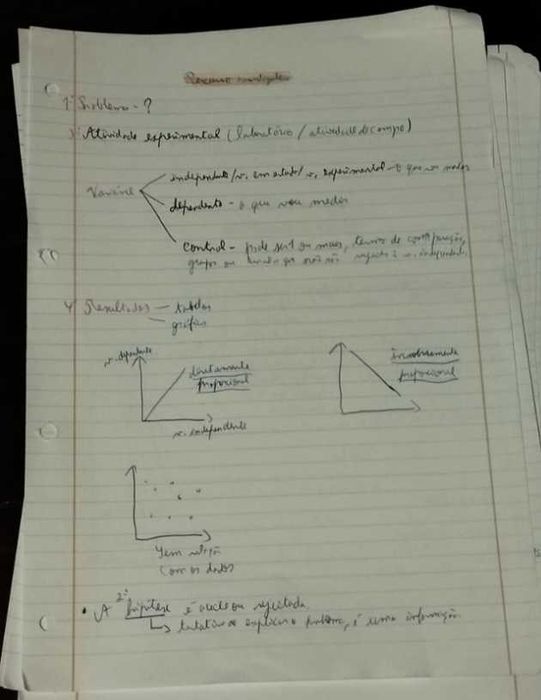 1º Problema - ?
3º Atividade experimental (laboratório / atividade de campo)
independente / v. em estudo / v. experimental - o que vou mudar
Variável
dependente - o que vou medir
control - pode ser 1 ou mais, termo de comparação,
grupo ou que não sujeito à v. independente
4º Resultados - tabelas
gráficos
v. dependente
diretamente
proporcional
inversamente
proporcional
v. independente
sem relação
com os dados
• A 2º hipótese é aceite ou rejeitada.
tentativa de explicar o problema, é uma informação.